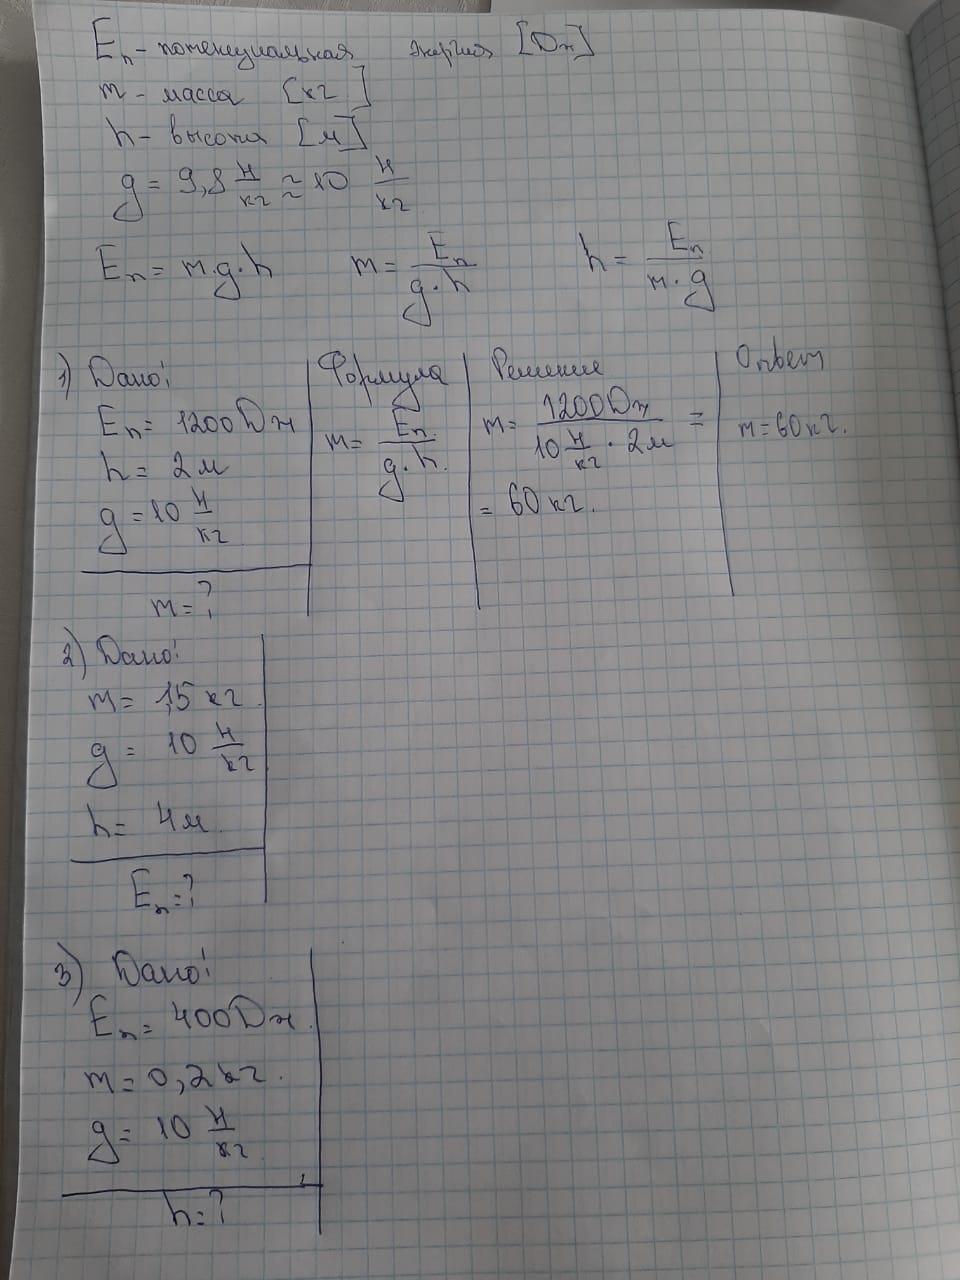 Eп - потенциальная энергия [Дж]
m - масса [кг]
h - высота [м]
g = 9,8 Н/кг ≈ 10 Н/кг
Eп = m·g·h m = Eп/(g·h) h = Eп/(m·g)
1) Дано: Формула Решение Ответ
Eп = 1200 Дж m = Eп/(g·h) m = 1200Дж/(10 Н/кг · 2м) = m = 60 кг.
h = 2 м = 60 кг.
g = 10 Н/кг
m = ?
2) Дано:
m = 1,5 кг
g = 10 Н/кг
h = 4 м
Eп = ?
3) Дано:
Eп = 400 Дж.
m = 0,2 кг.
g = 10 Н/кг
h = ?